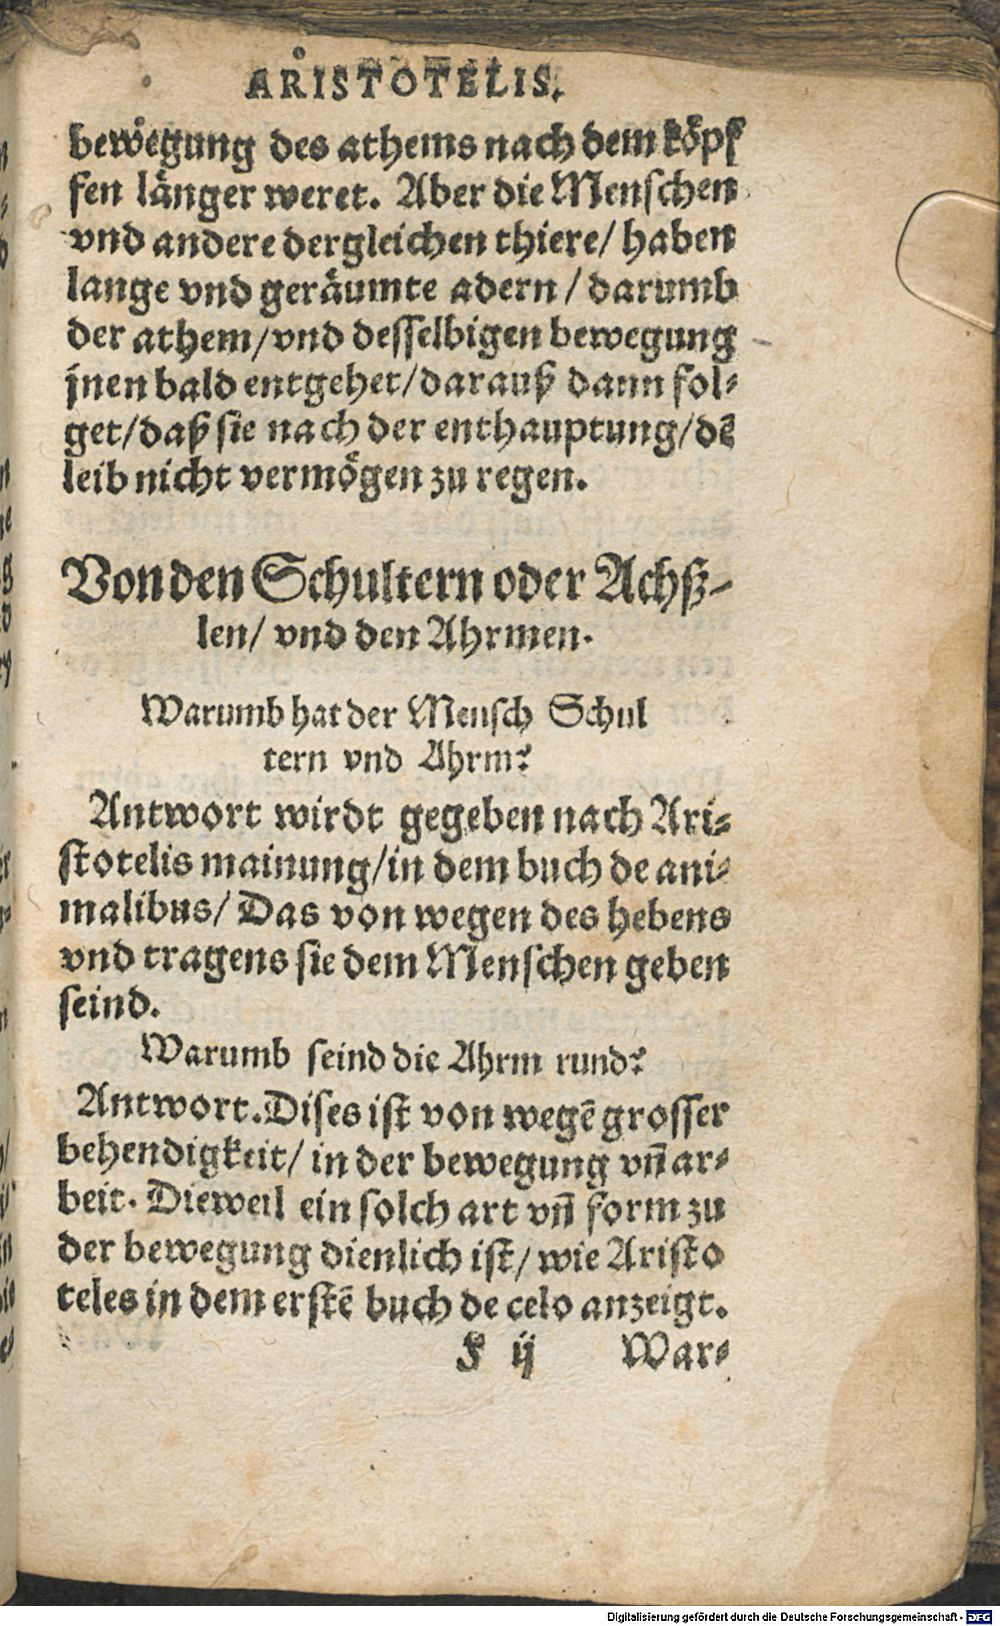 ARISTOTELIS.
bewegung des athems nach dem köpf
fen länger weret. Aber die Menschen
vnd andere dergleichen thiere/ haben
lange vnd geräumte adern / darumb
der athem/vnd desselbigen bewegung
jnen bald entgehet/darauß dann fol⸗
get/daß sie nach der enthauptung/dē
leib nicht vermögen zu regen.
Von den Schultern oder Achß⸗
len/ vnd den Ahrmen.
Warumb hat der Mensch Schul
tern vnd Ahrm?
Antwort wirdt gegeben nach Ari⸗
stotelis mainung/in dem buch de ani⸗
malibus/ Das von wegen des hebens
vnd tragens sie dem Menschen geben
seind.
Warumb seind die Ahrm rund?
Antwort. Dises ist von wegē grosser
behendigkeit/ in der bewegung vn̄ ar⸗
beit. Dieweil ein solch art vn̄ form zu
der bewegung dienlich ist/ wie Aristo
teles in dem erstē buch de celo anzeigt.
F ij War⸗
Digitalisierung gefördert durch die Deutsche Forschungsgemeinschaft - DFG